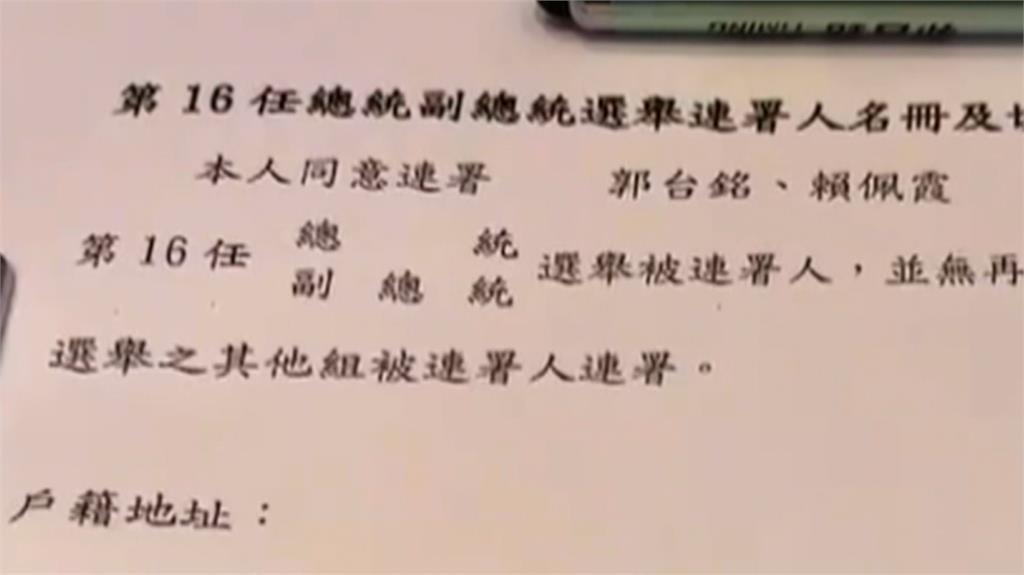 第16任總統副總統選舉連署人名冊及切
本人同意連署 郭台銘、賴佩霞
第16任 總統 選舉被連署人，並無再
副總統
選舉之其他組被連署人連署。
戶籍地址：